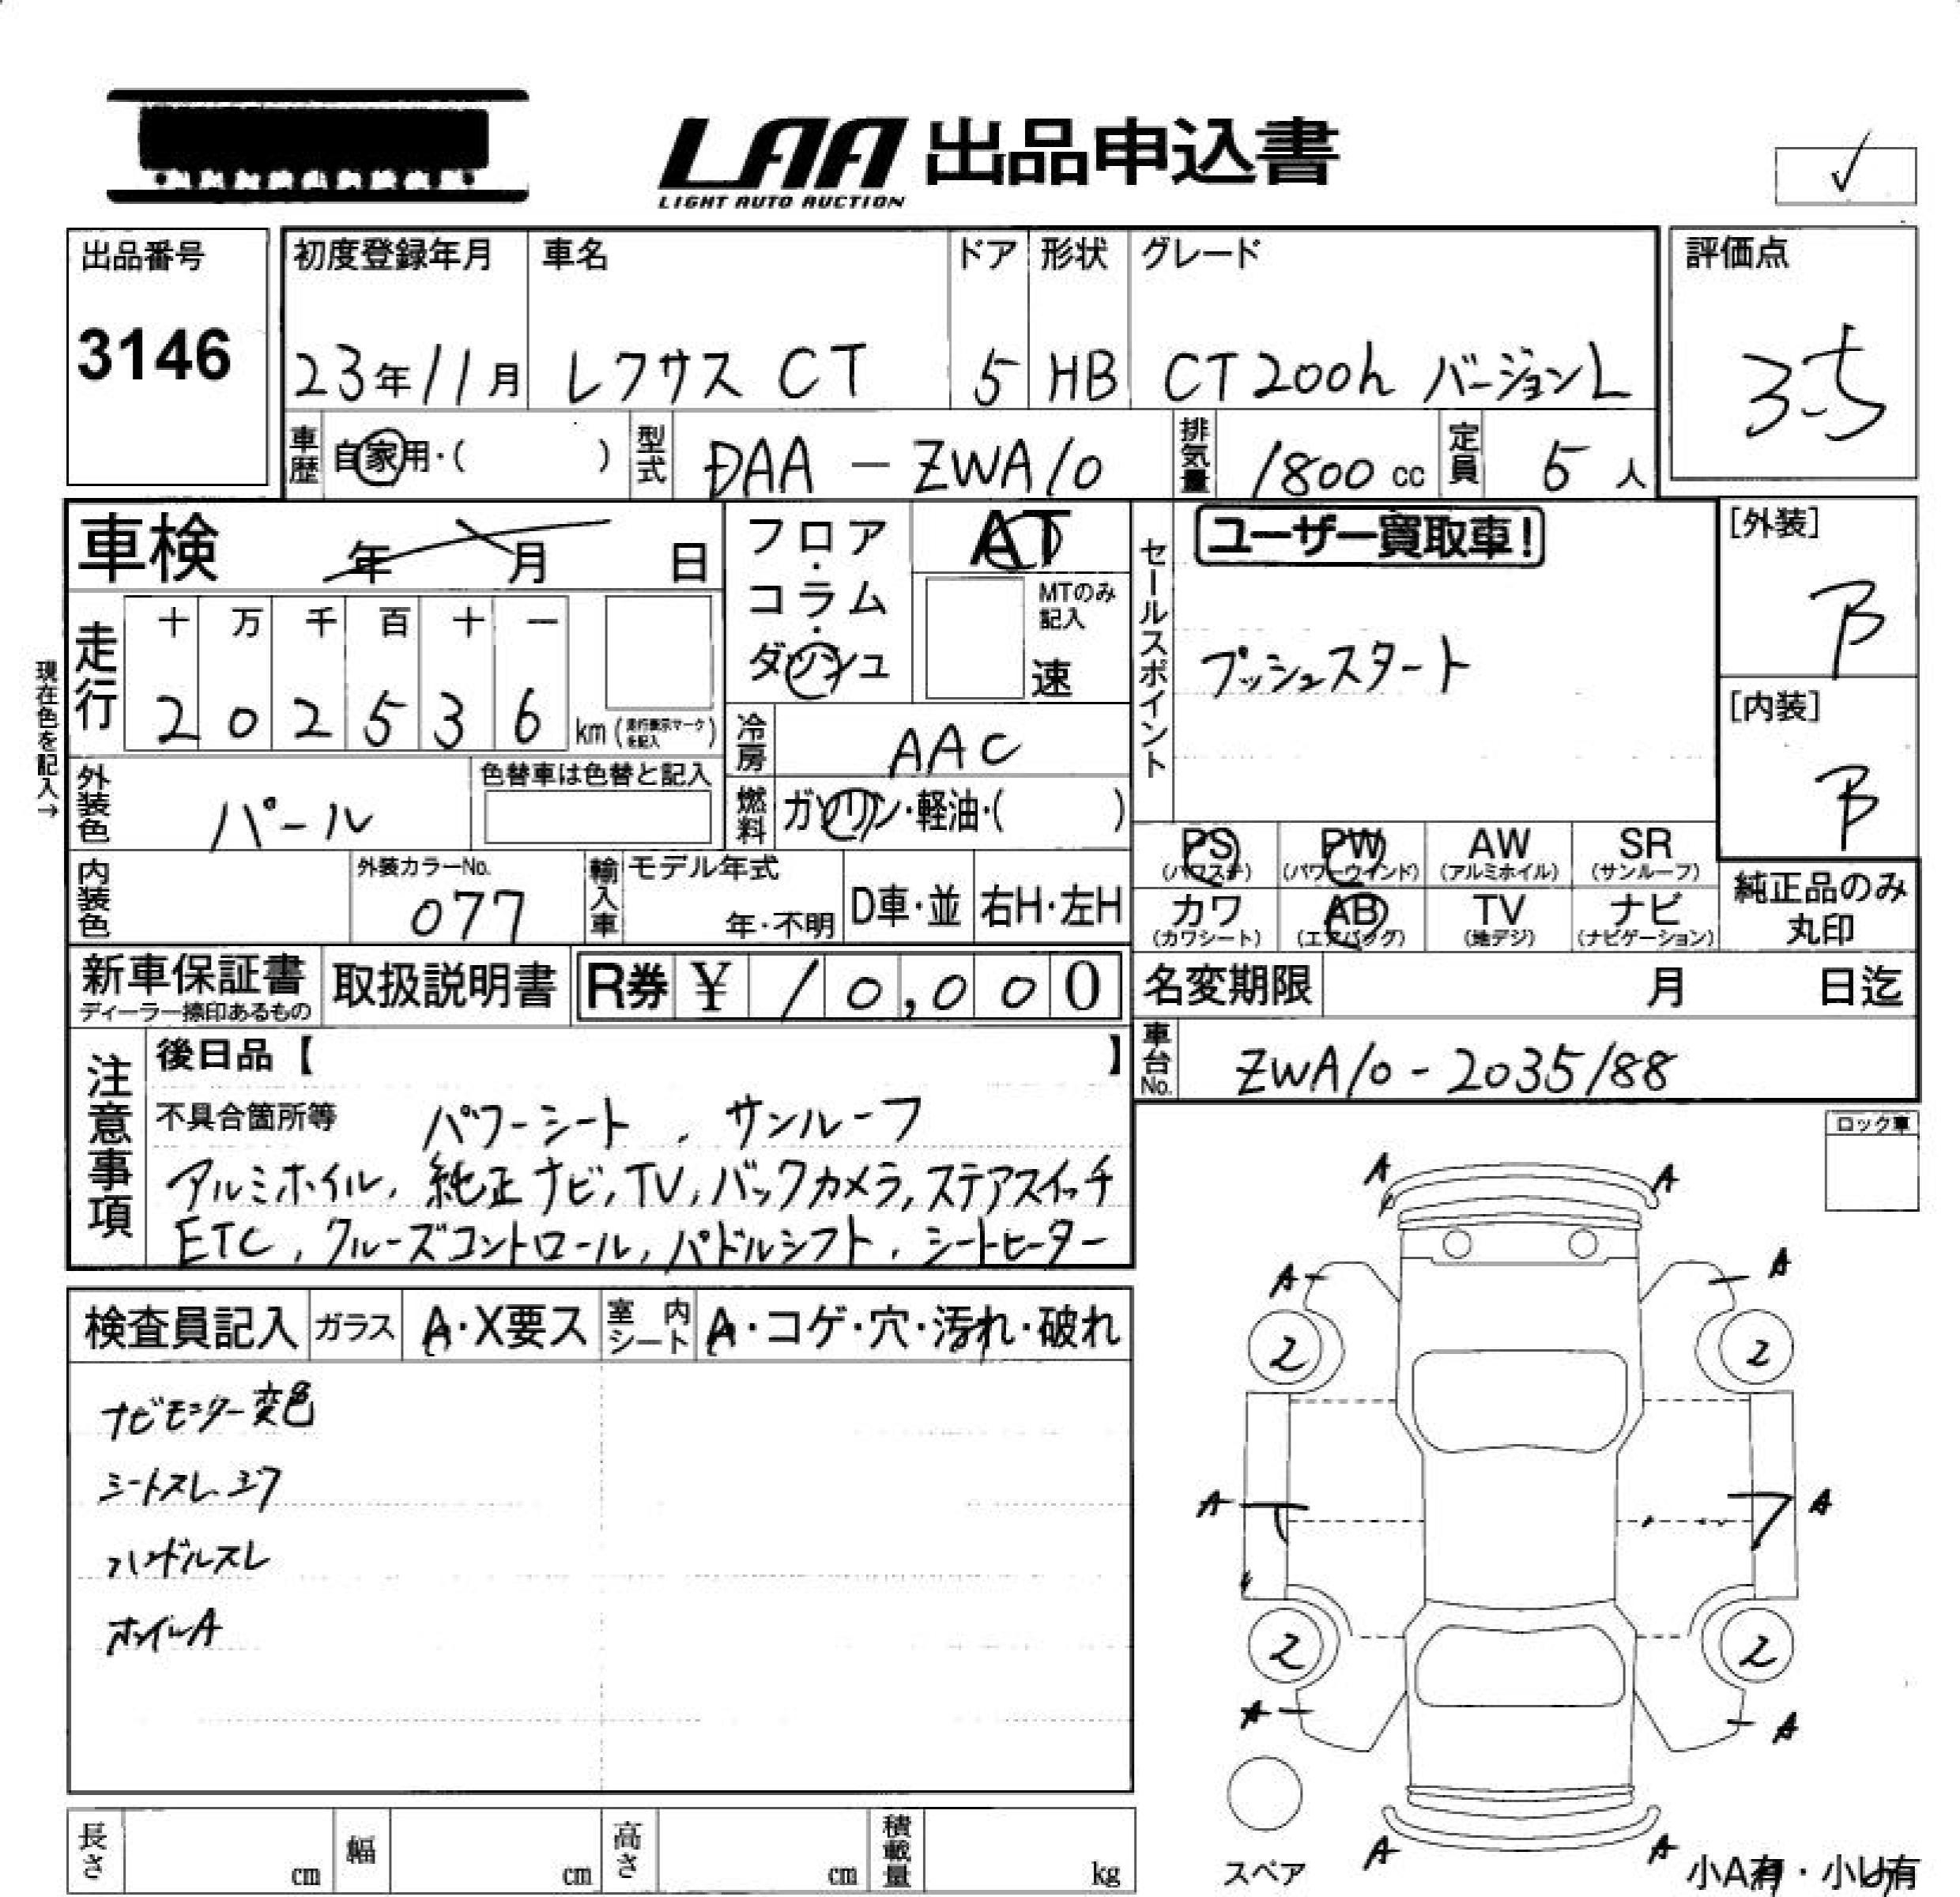 LAA 出品申込書
LIGHT AUTO AUCTION
✓
出品番号
3146
初度登録年月
23年11月
車名
レクサス CT
ドア
5
形状
HB
グレード
CT200h バージョンL
評価点
3.5
車歴
自家用・( )
型式
DAA-ZWA10
排気量
1800cc
定員
5人
車検
年 月 日
フロア・コラム・ダッシュ
AT
MTのみ記入
速
セールスポイント
ユーザー買取車!
プッシュスタート
[外装]
B
[内装]
B
現在色を記入→
走行
十 万 千 百 十 一
2 0 2 5 3 6 km(走行表示マークを記入)
冷房
AAC
外装色
パール
色替車は色替と記入
燃料
ガソリン・軽油・( )
PS (パワステ)
PW (パワーウインド)
AW (アルミホイル)
SR (サンルーフ)
カワ (カワシート)
AB (エアバッグ)
TV (地デジ)
ナビ (ナビゲーション)
純正品のみ丸印
内装色
外装カラーNo.
077
輸入車
モデル年式
年・不明
D車・並
右H・左H
新車保証書
ディーラー捺印あるもの
取扱説明書
R券 ¥ 10,000
名変期限
月 日迄
車台No.
ZWA10-2035188
注意事項
後日品【 】
不具合箇所等 パワーシート、サンルーフ
アルミホイル、純正ナビ、TV、バックカメラ、ステアスイッチ
ETC、クルーズコントロール、パドルシフト、シートヒーター
ロック車
検査員記入
ガラス
A・X要ス
室内シート
A・コゲ・穴・汚れ・破れ
ナビモニター変色
シートスレ、シワ
ハンドルスレ
ホイルA
A A
A A
2 2
A A
2 2
A A
A A
スペア
小A有・小U有
長さ cm
幅 cm
高さ cm
積載量 kg